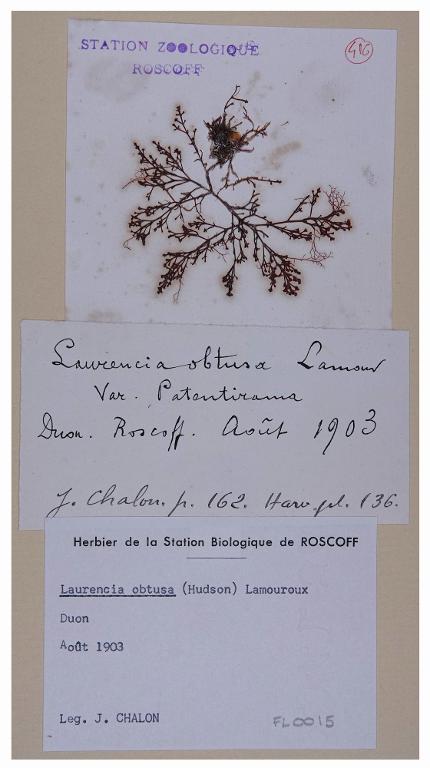 STATION ZOOLOGIQUE
ROSCOFF
416
Laurencia obtusa Lamour
Var. Patentirama
Duon. Roscoff. Août 1903
J. Chalon. p. 162. Harv. pl. 136.
Herbier de la Station Biologique de ROSCOFF
Laurencia obtusa (Hudson) Lamouroux
Duon
Août 1903
Leg. J. CHALON
FL0015